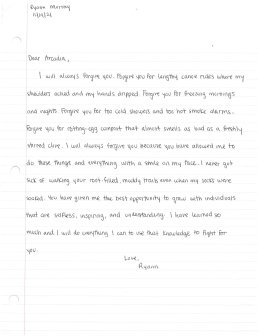 Ryann Murray
Dear Arcadia,
I will always forgive you. Forgive you for lengthy canoe rides where my
shoulders ached and my hands dripped. Forgive you for freezing mornings
and nights. Forgive you for too cold showers and too hot smoke alarms.
Forgive you for rotting-egg compost that almost smells as bad as a freshly
shred clive. I will always forgive you because you have allowed me to
do these things and everything with a smile on my face. I never got
sick of walking your root-filled, muddy trails even when my socks were
soaked. You have given me the best opportunity to grow with individuals
that are selfless, inspiring, and understanding. I have learned so
much and I will do everything I can to use that knowledge to fight for
you.
Love,
Ryann